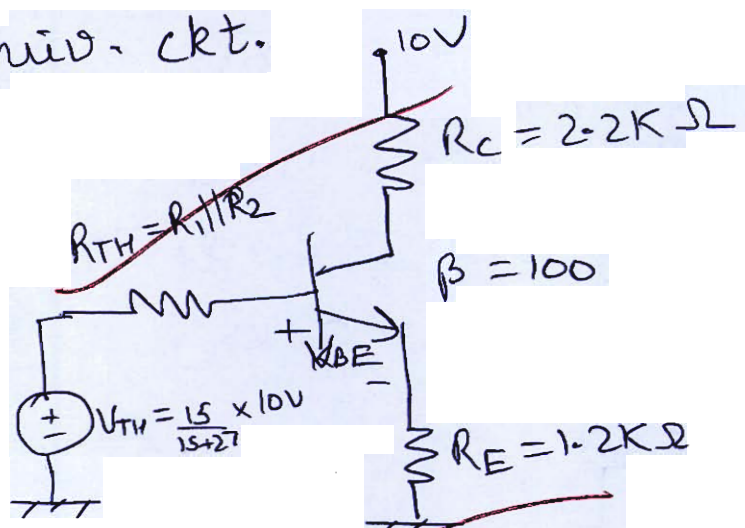 ckt.
10V
RC = 2.2K Ω
RTH = R1||R2
β = 100
+
VBE
-
+
-
VTH = 15/15+27 × 10V
RE = 1.2KΩ